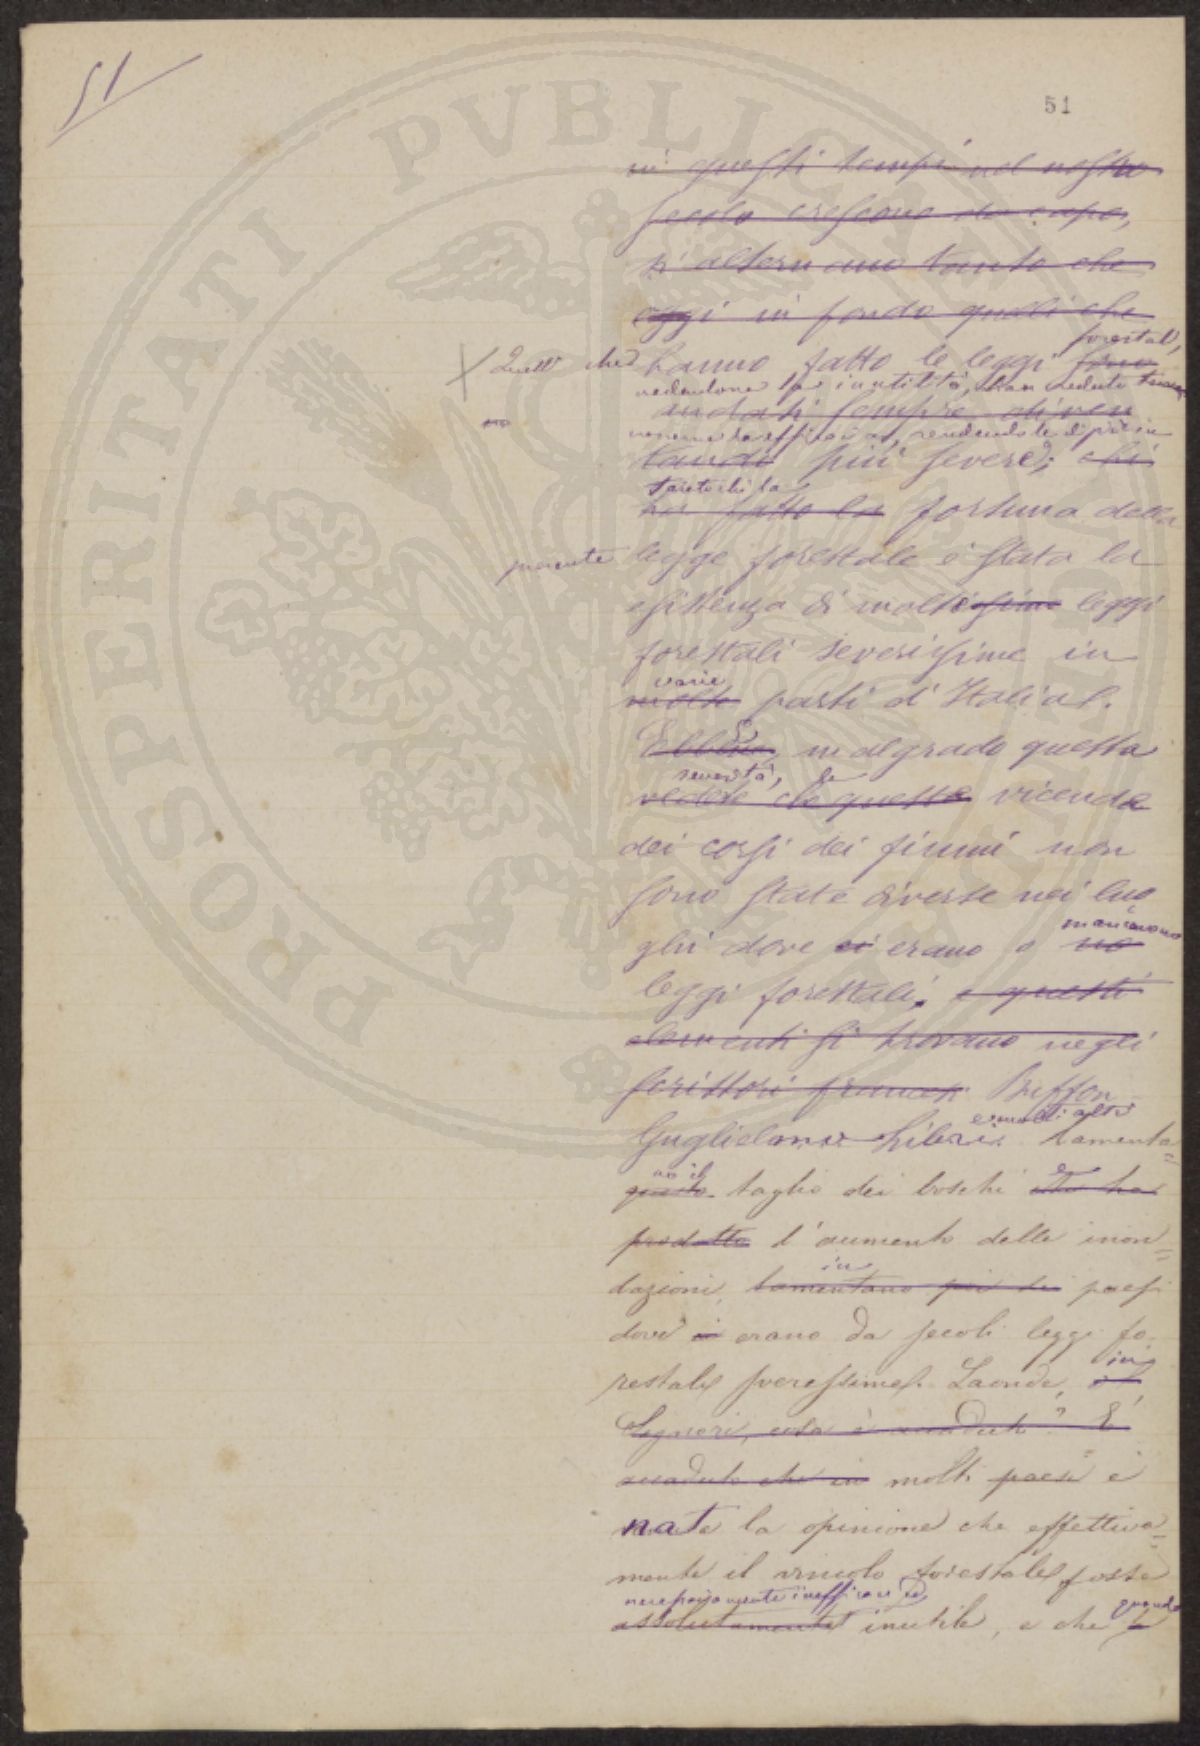 51
51
in questi tempi nel nostro
secolo crescono da capo,
s'alternano tanto che
oggi in fondo quelli che
forestali,
Quelli che hanno fatto le leggi sono
vedendone la inutilità, han creduto
andati sempre diven
efficaci, rendendole di più in
tando più severe; chi
tantochè la
ha fatto la fortuna della
presente legge forestale è stata la
esistenza di moltissime leggi
forestali severissime in
varie
molte parti d'Italia.
E
Ebbene, malgrado questa
severità, le
vedete che queste vicende
dei corsi dei fiumi non
sono state diverse nei luo
ghi dove vi erano o no
mancavano
leggi forestali, e questi
elementi si trovano negli
scrittori francesi. Buffon
e molti altri
Guglielmo Libri. lamenta=
no il
questo taglio dei boschi che ha
e
prodotto l'aumento delle inon=
in
dazioni, lamentano poi dei paesi
dove vi erano da secoli leggi fo
restali severissime. Laonde, o
in
Signori, cosa è accaduto? È
accaduto che in molti paesi è
nata la opinione che effettiva=
mente il vincolo forestale fosse
necessariamente inefficace ed
quando
assolutamente inutile, e che se